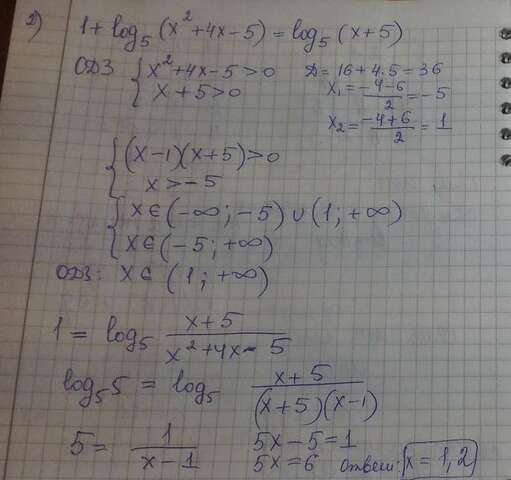 2) 1 + log₅ (x² + 4x - 5) = log₅ (x + 5)
ОДЗ { x² + 4x - 5 > 0
x + 5 > 0
Д = 16 + 4·5 = 36
x₁ = (-4-6)/2 = -5
x₂ = (-4+6)/2 = 1
{ (x-1)(x+5) > 0
x > -5
{ x ∈ (-∞; -5) ∪ (1; +∞)
x ∈ (-5; +∞)
ОДЗ: x ∈ (1; +∞)
1 = log₅ (x+5)/(x² + 4x - 5)
log₅5 = log₅ (x+5)/((x+5)(x-1))
5 = 1/(x-1)
5x - 5 = 1
5x = 6
ответ: x = 1,2